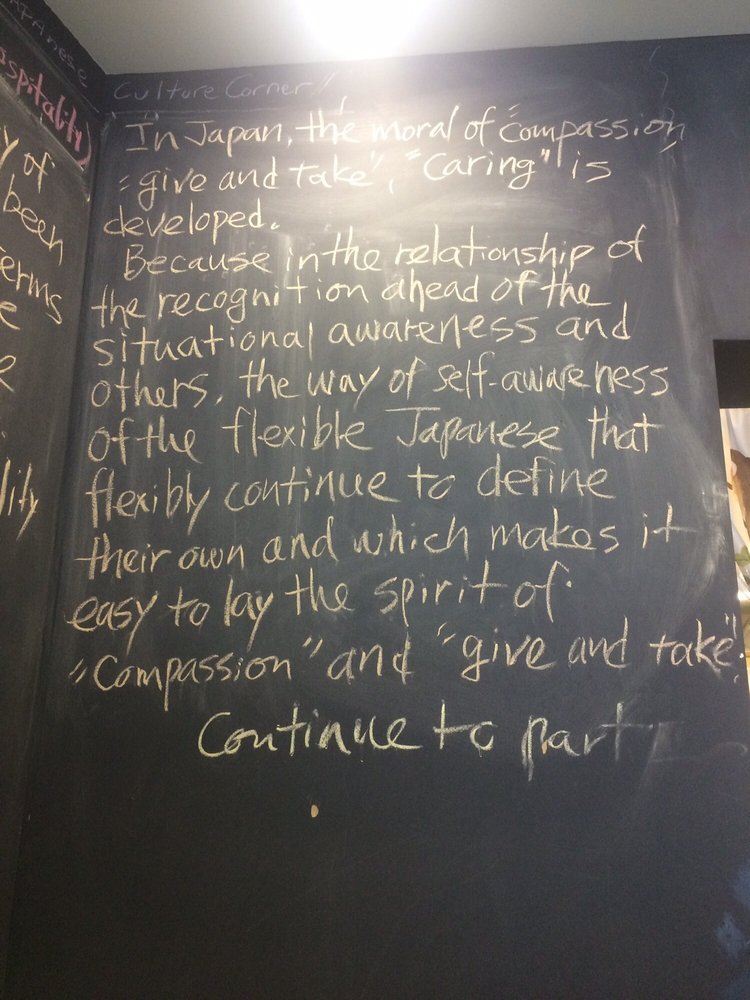 Japanese
ospitality)
y of
been
erms
e
lity
Culture Corner!!
In Japan, the moral of "compassion
"give and take", "caring" is
developed.
Because in the relationship of
the recognition ahead of the
situational awareness and
others, the way of self-awareness
of the flexible Japanese that
flexibly continue to define
their own and which makes it
easy to lay the spirit of
"Compassion" and "give and take".
Continue to part